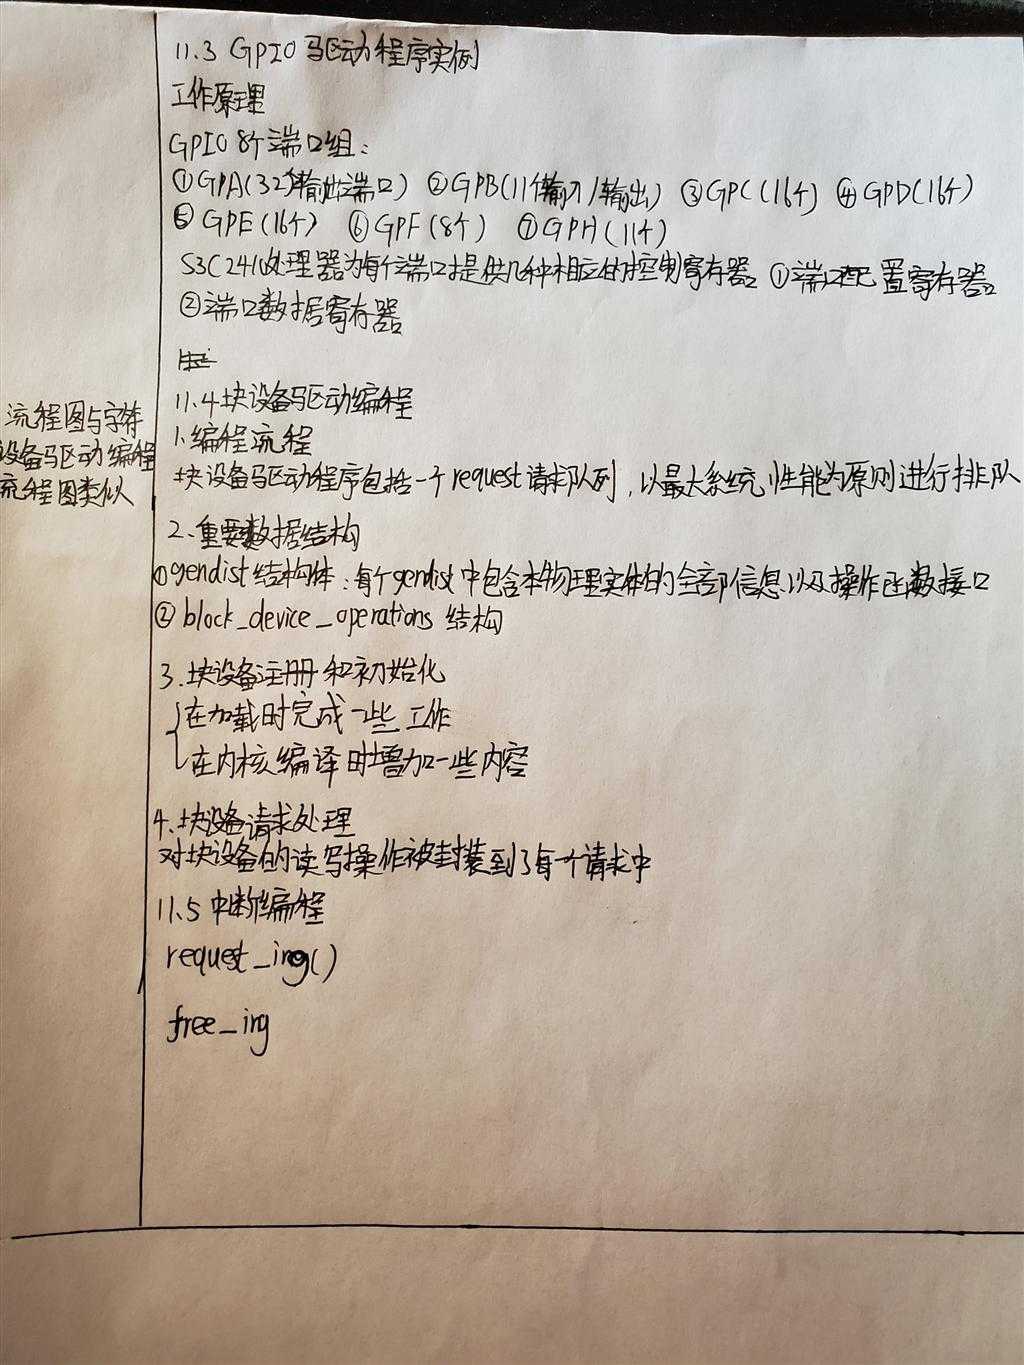 11.3 GPIO 驱动程序实例
工作原理
GPIO 8个端口组：
①GPA(32个输出端口) ②GPB(11个输入/输出) ③GPC(16个) ④GPD(16个)
⑤GPE(16个) ⑥GPF(8个) ⑦GPH(11个)
S3C2410处理器为每个端口提供几种相应的控制寄存器 ①端口配置寄存器
②端口数据寄存器
11.4块设备驱动编程
流程图与字符
设备驱动编程
流程图类似
1.编程流程
块设备驱动程序包括一个request请求队列，以最大系统性能为原则进行排队
2.重要数据结构
①gendist结构体：每个gendist中包含本物理实体的全部信息以及操作函数接口
②block_device_operations 结构
3.块设备注册和初始化
在加载时完成一些工作
在内核编译时增加一些内容
4.块设备请求处理
对块设备的读写操作被封装到了每一个请求中
11.5 中断编程
request_irq()
free_irq